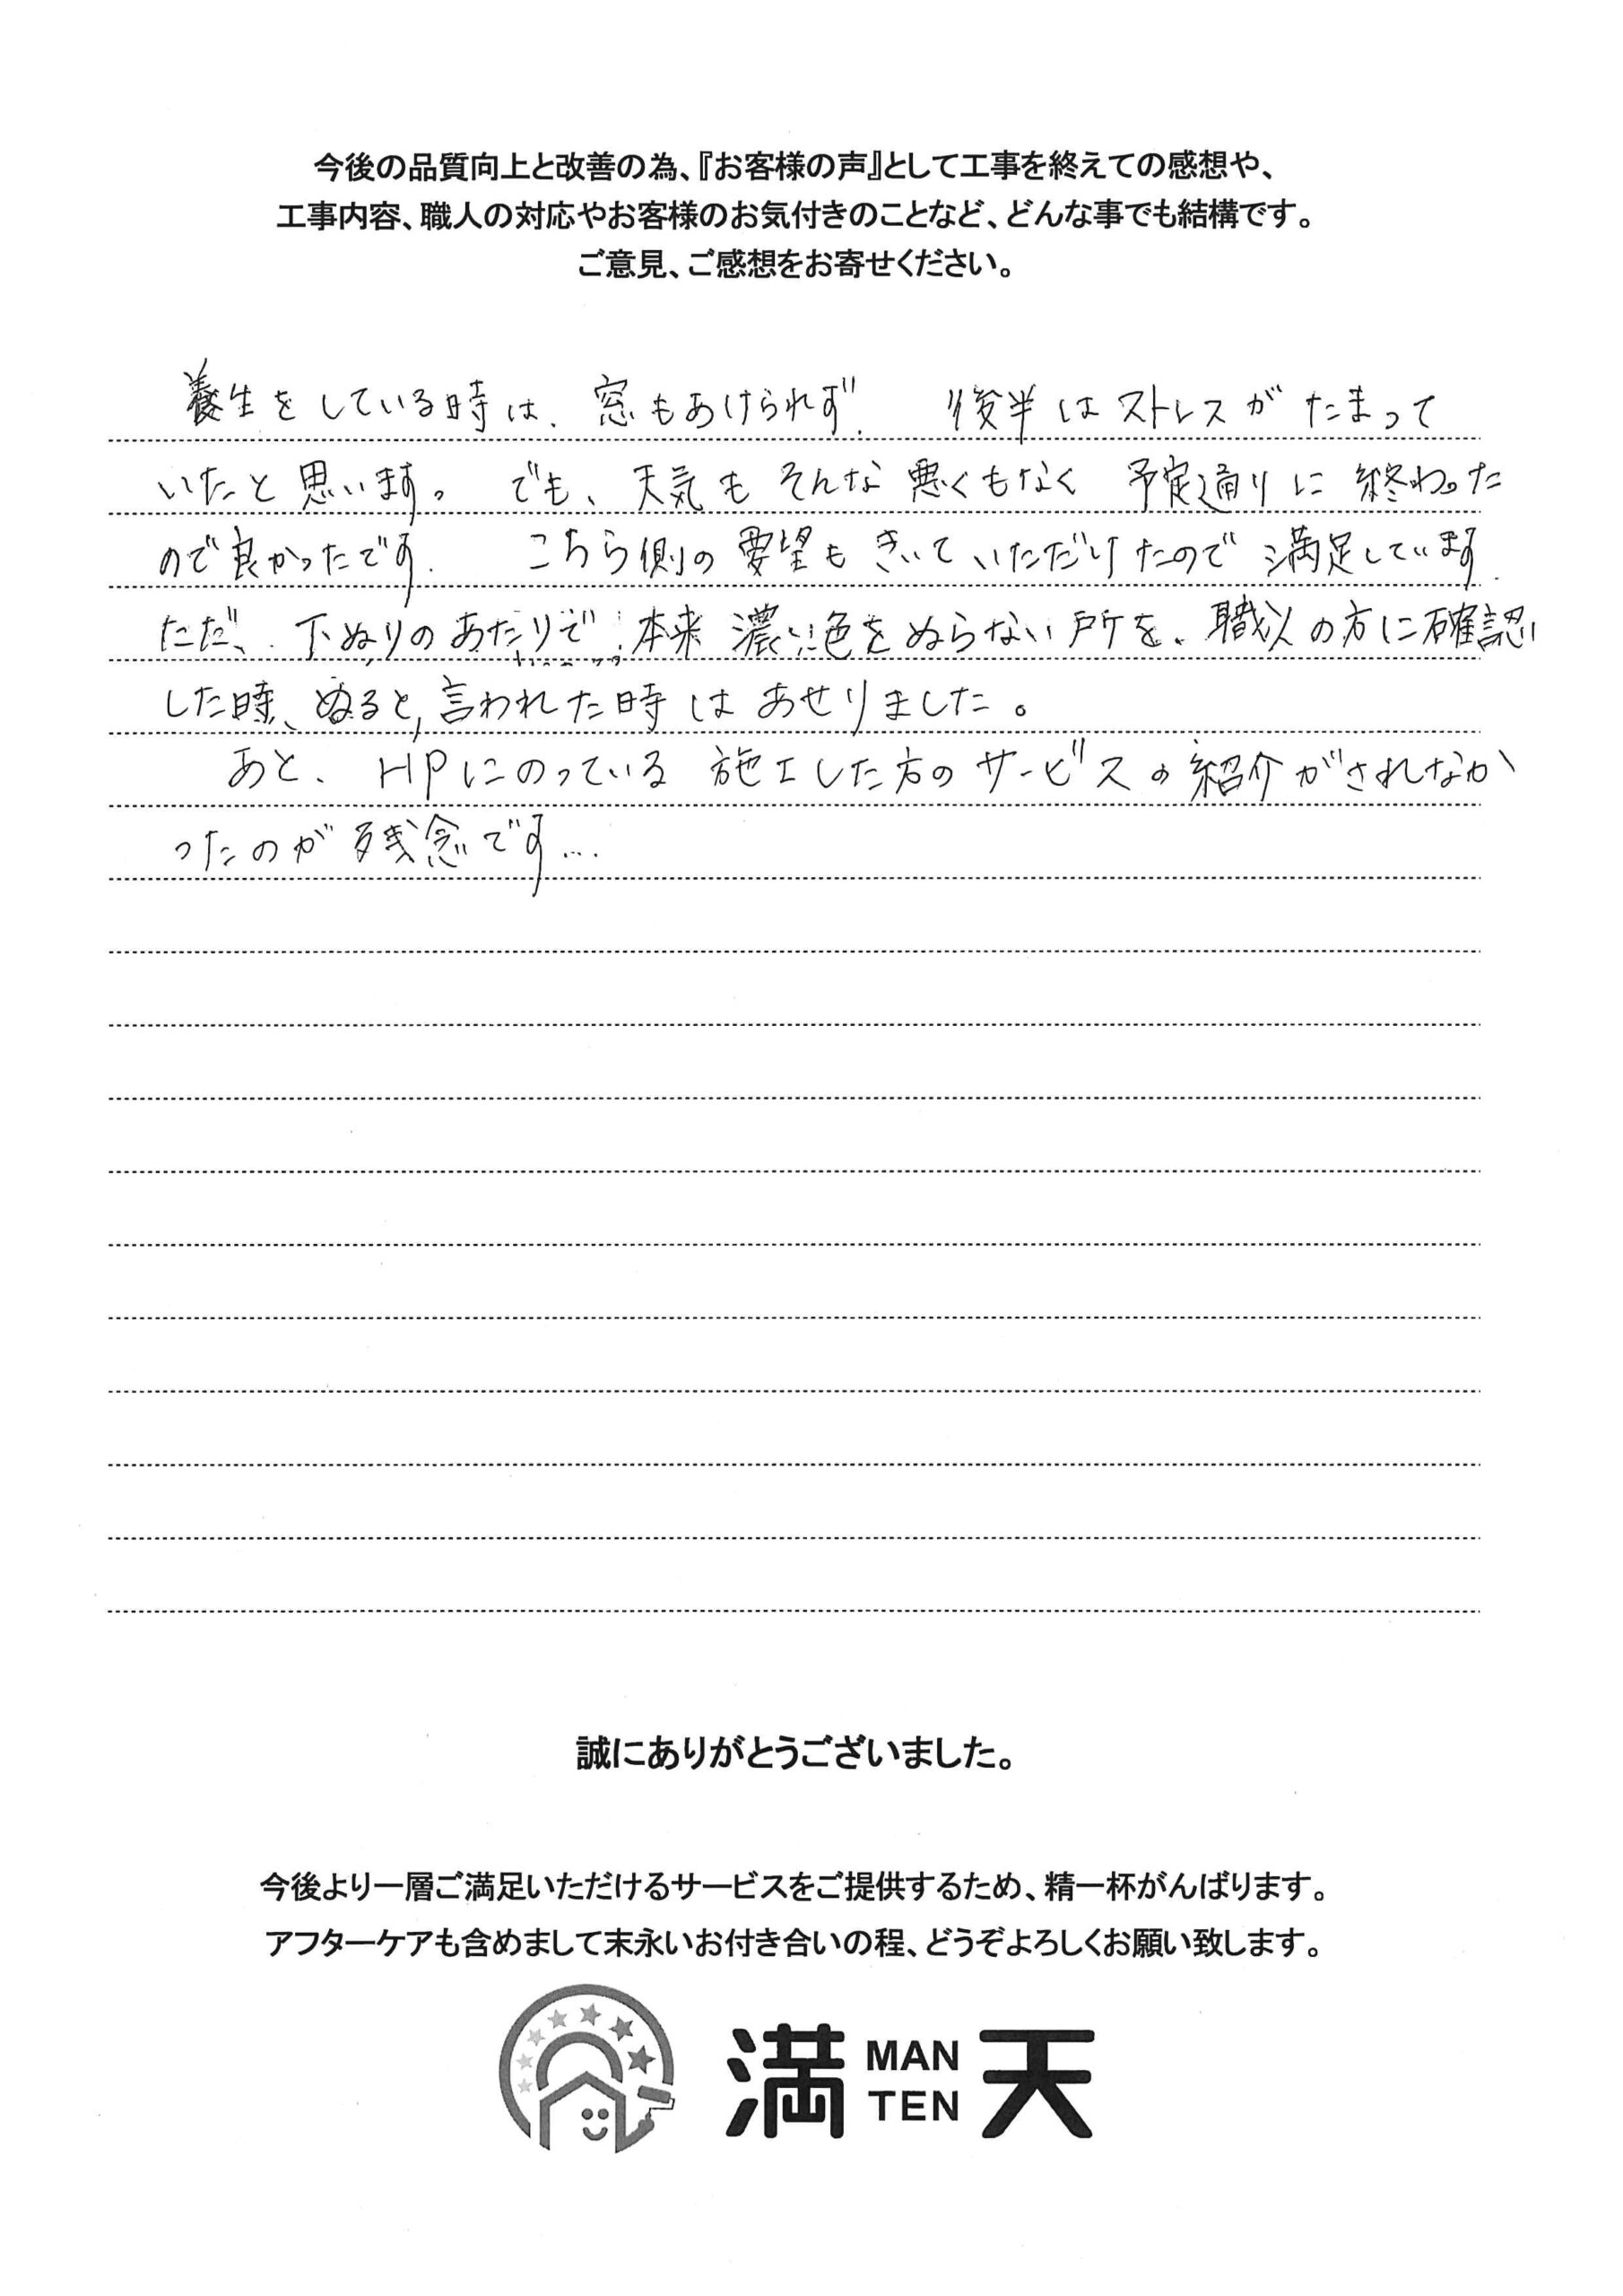 今後の品質向上と改善の為、『お客様の声』として工事を終えての感想や、
工事内容、職人の対応やお客様のお気付きのことなど、どんな事でも結構です。
ご意見、ご感想をお寄せください。
養生をしている時は、窓もあけられず、後半はストレスがたまって
いたと思います。でも、天気もそんな悪くもなく予定通りに終わった
ので良かったです。こちら側の要望もきいていただけたので満足しています。
ただ、下ぬりのあたりで、本来濃い色をぬらない所を、職人の方に確認
した時、ぬると言われた時はあせりました。
あと、HPにのっている施工した方のサービスの紹介がされなか
ったのが残念です…
誠にありがとうございました。
今後より一層ご満足いただけるサービスをご提供するため、精一杯がんばります。
アフターケアも含めまして末永いお付き合いの程、どうぞよろしくお願い致します。
満 MAN TEN 天